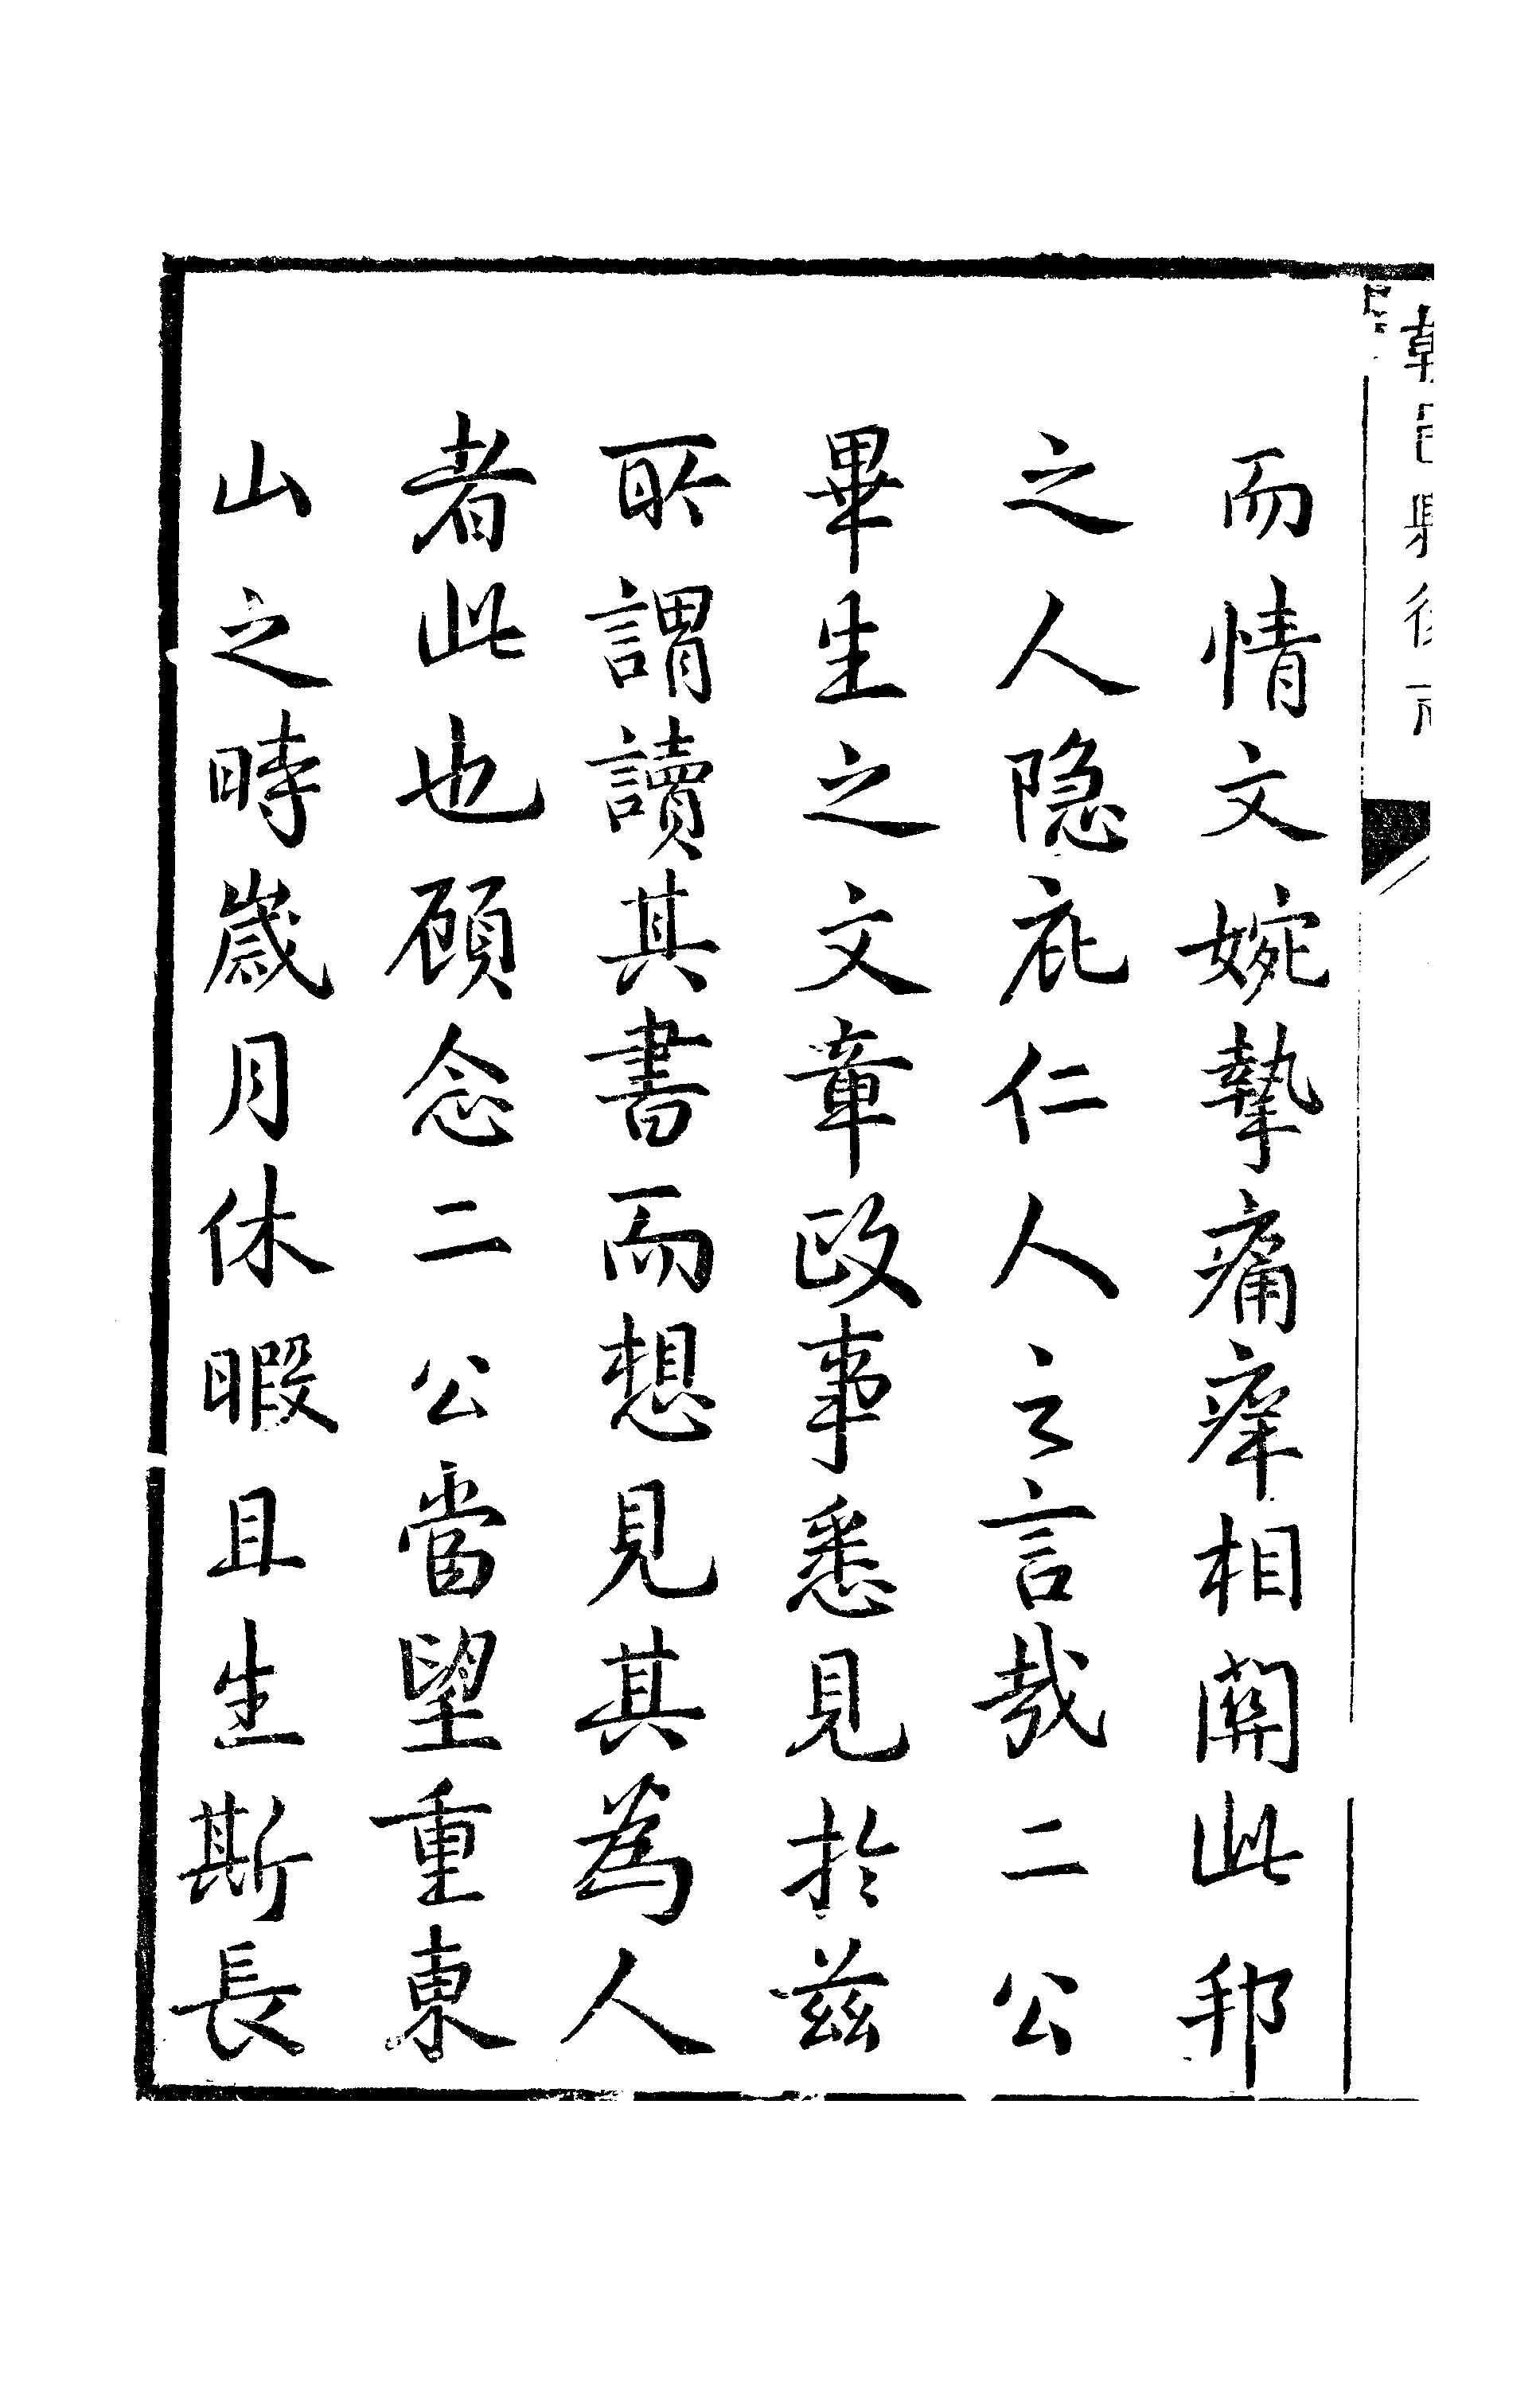 朝邑縣後
而情文婉摯痛痒相關此邦
之人隐庇仁人之言哉二公
畢生之文章政事悉見於茲
所謂讀其書而想見其為人
者此也頋念二公當望重東
山之時歲月休暇且生斯長